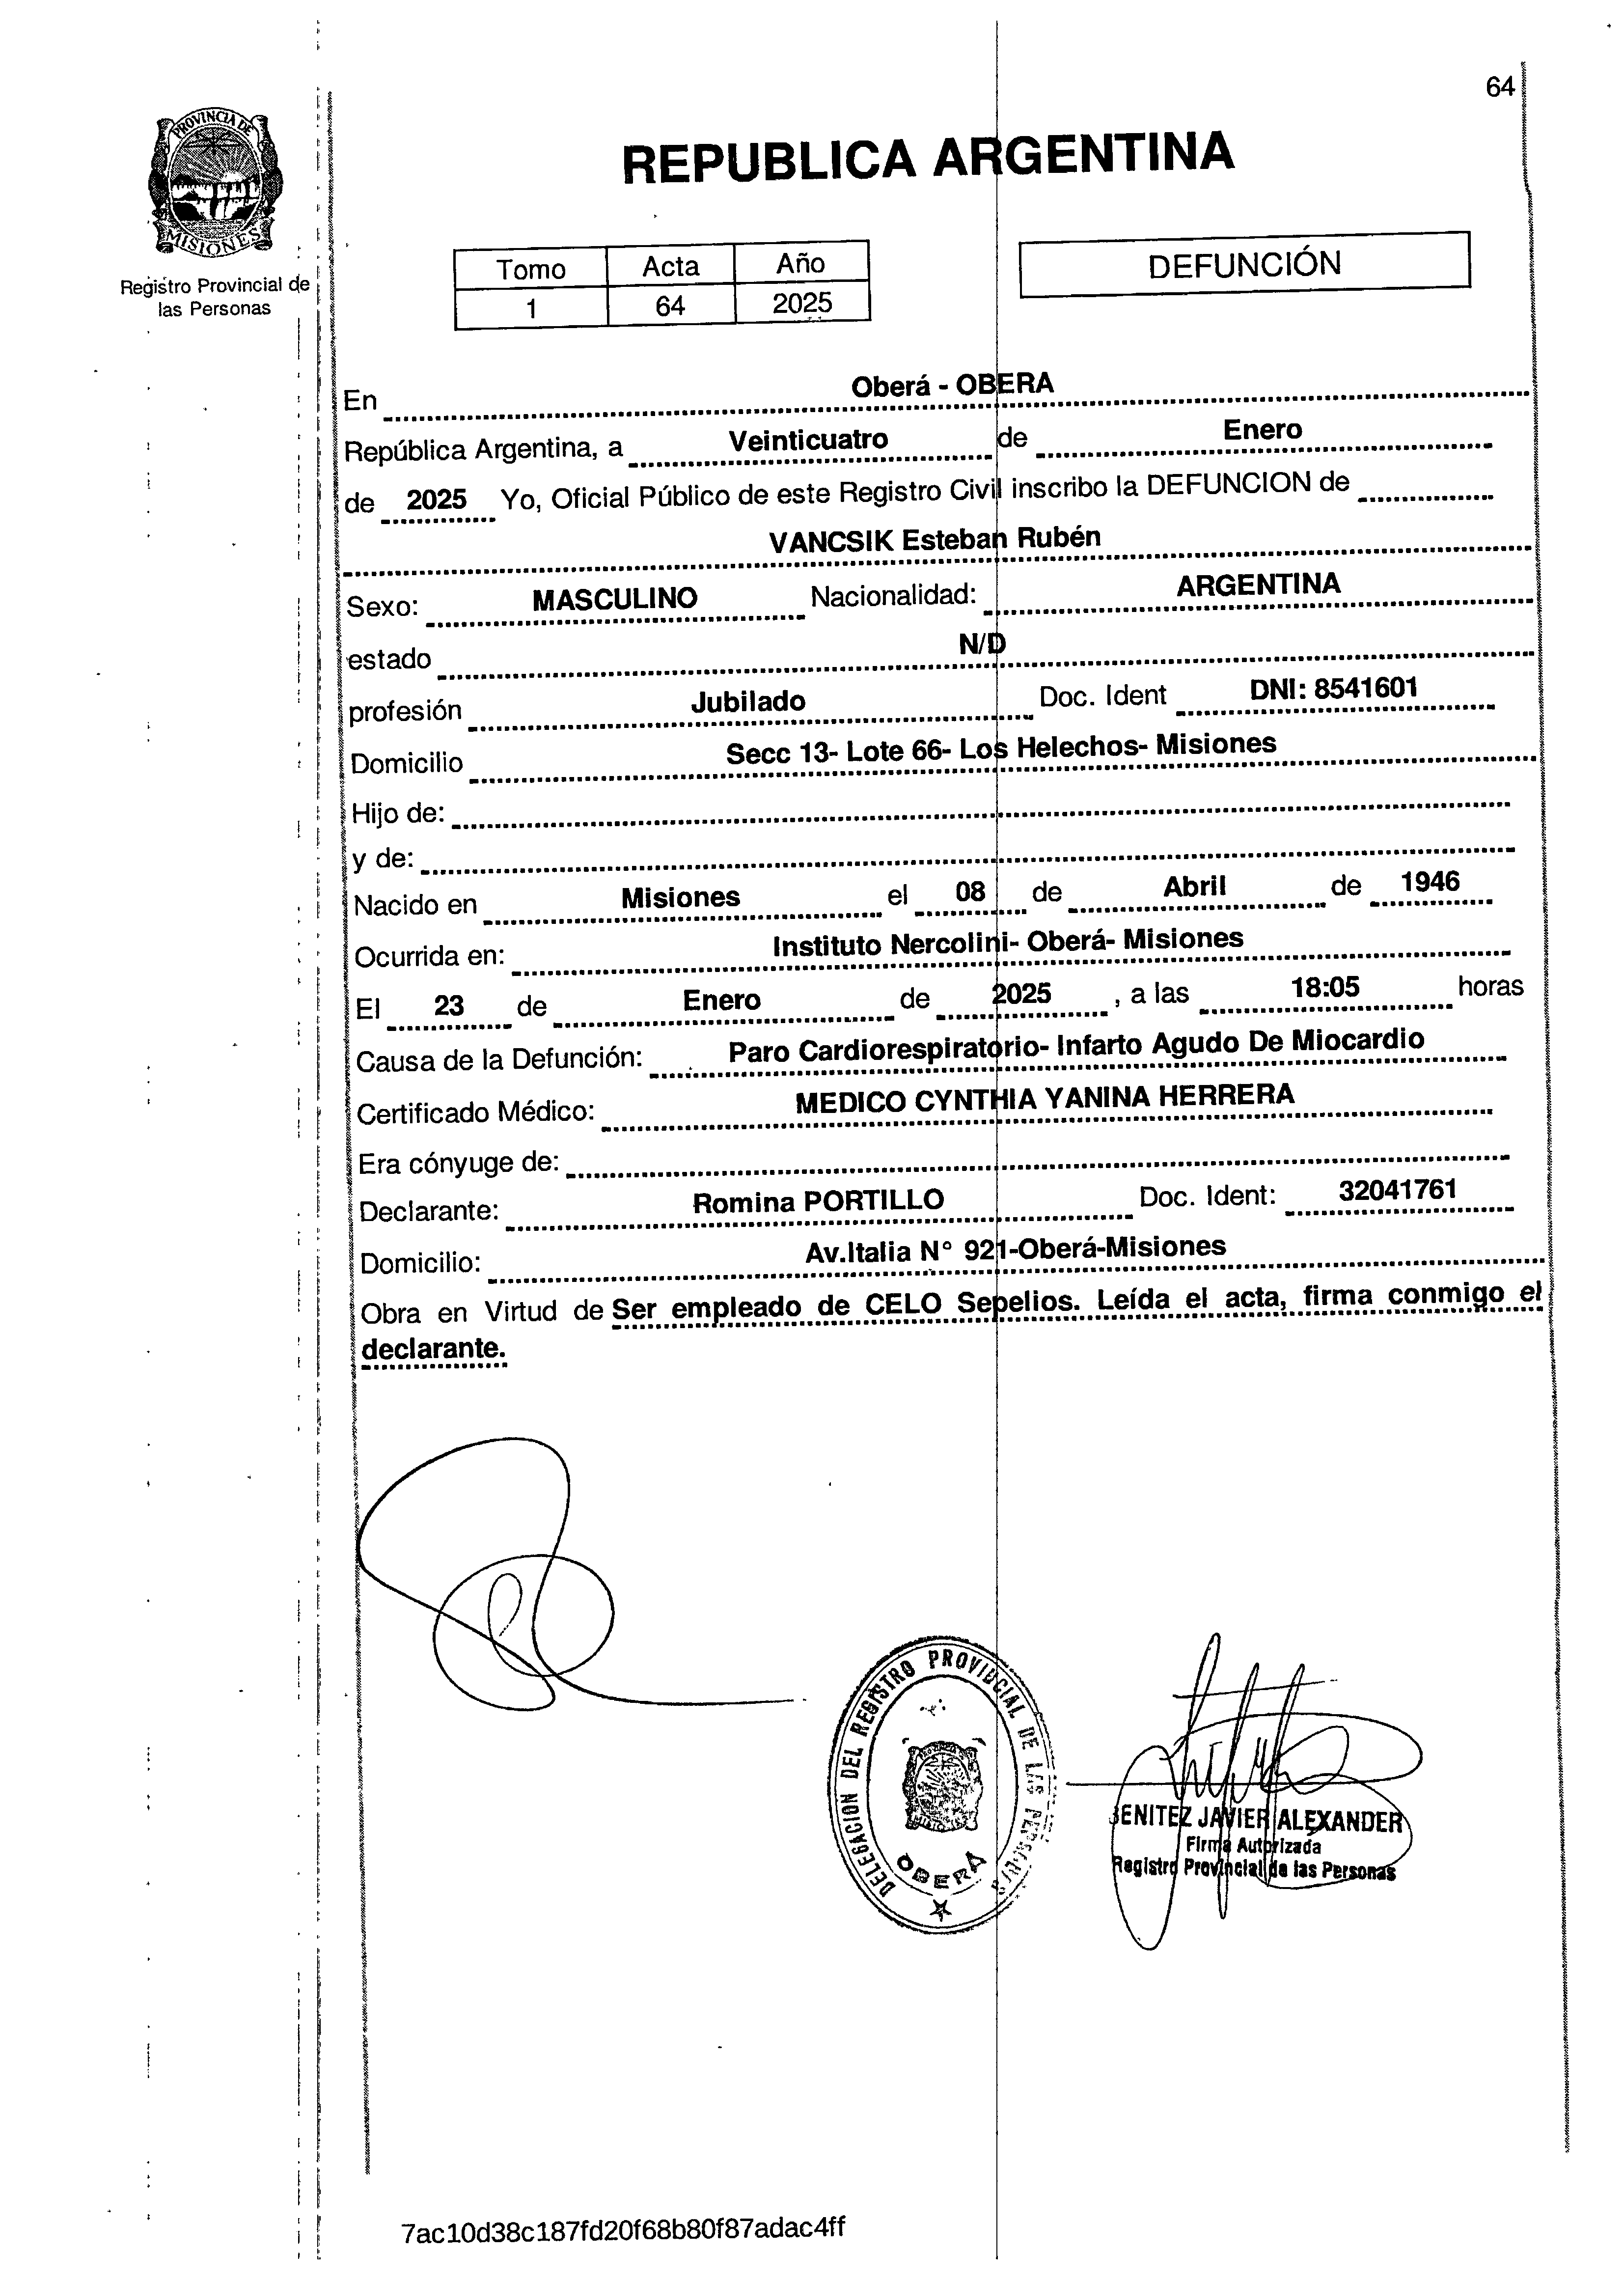 64
PROVINCIA DE
MISIONES
Registro Provincial de
las Personas
REPUBLICA ARGENTINA
Tomo Acta Año
1 64 2025
DEFUNCIÓN
En Oberá - OBERA
República Argentina, a Veinticuatro de Enero
de 2025 Yo, Oficial Público de este Registro Civil inscribo la DEFUNCION de
VANCSIK Esteban Rubén
Sexo: MASCULINO Nacionalidad: ARGENTINA
estado N/D
profesión Jubilado Doc. Ident DNI: 8541601
Domicilio Secc 13- Lote 66- Los Helechos- Misiones
Hijo de:
y de:
Nacido en Misiones el 08 de Abril de 1946
Ocurrida en: Instituto Nercolini- Oberá- Misiones
El 23 de Enero de 2025 , a las 18:05 horas
Causa de la Defunción: Paro Cardiorespiratorio- Infarto Agudo De Miocardio
Certificado Médico: MEDICO CYNTHIA YANINA HERRERA
Era cónyuge de:
Declarante: Romina PORTILLO Doc. Ident: 32041761
Domicilio: Av.Italia N° 921-Oberá-Misiones
Obra en Virtud de Ser empleado de CELO Sepelios. Leída el acta, firma conmigo el
declarante.
DELEGACION DEL REGISTRO PROVINCIAL DE LAS PERSONAS
OBERÁ
BENITEZ JAVIER ALEXANDER
Firma Autorizada
Registro Provincial de las Personas
7ac10d38c187fd20f68b80f87adac4ff